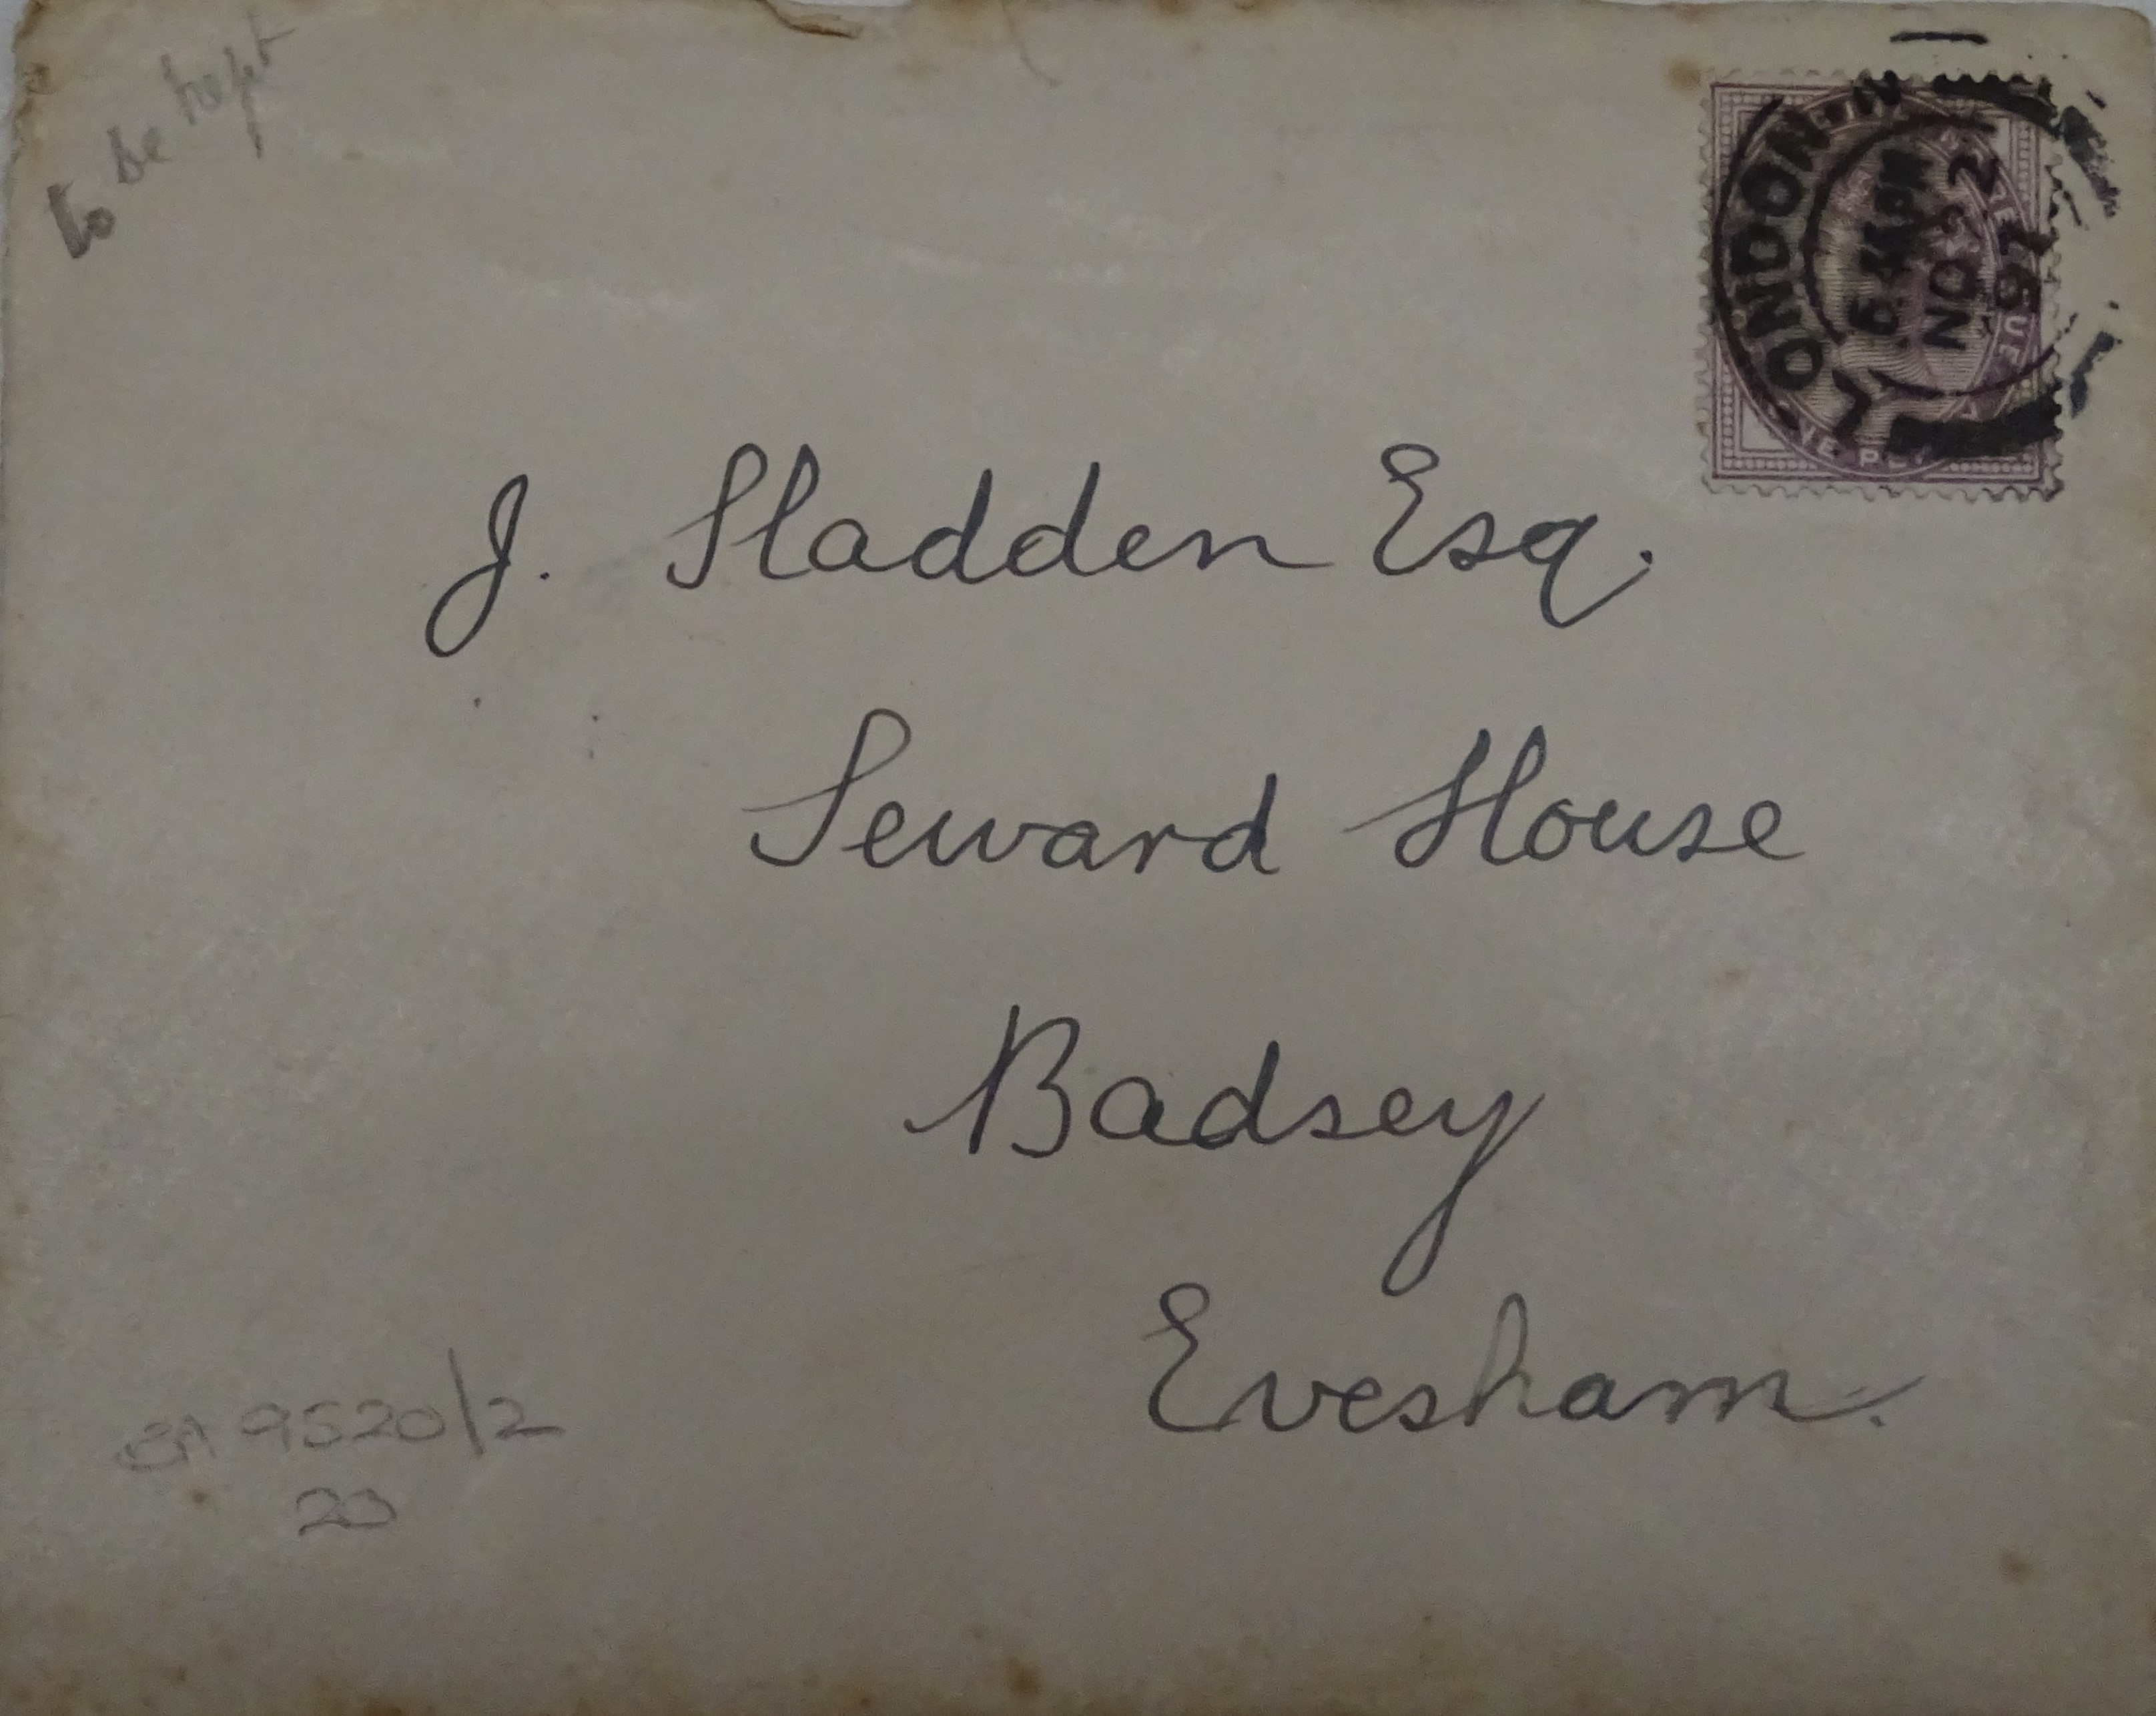 to be kept
J. Sladden Esq.
Seward House
Badsey
Evesham.
9520/2
23
LONDON. N
6. PM
NO 2
97